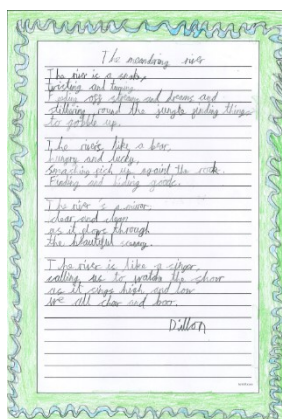 The meandring river
The river is a snake,
twisting and turning.
Feeding off streams and dreams and
slithering round the jungle finding things
to gobble up.
The river's like a bear,
hungry and lucky,
smashing fish up against the rocks.
Finding and hiding goods.
The river's a mirror,
clear and clean
as it flows through
the beautiful scenery.
The river is like a singer
calling us to watch the show
as it sings high and low
we all cheer and boo.
Dillon